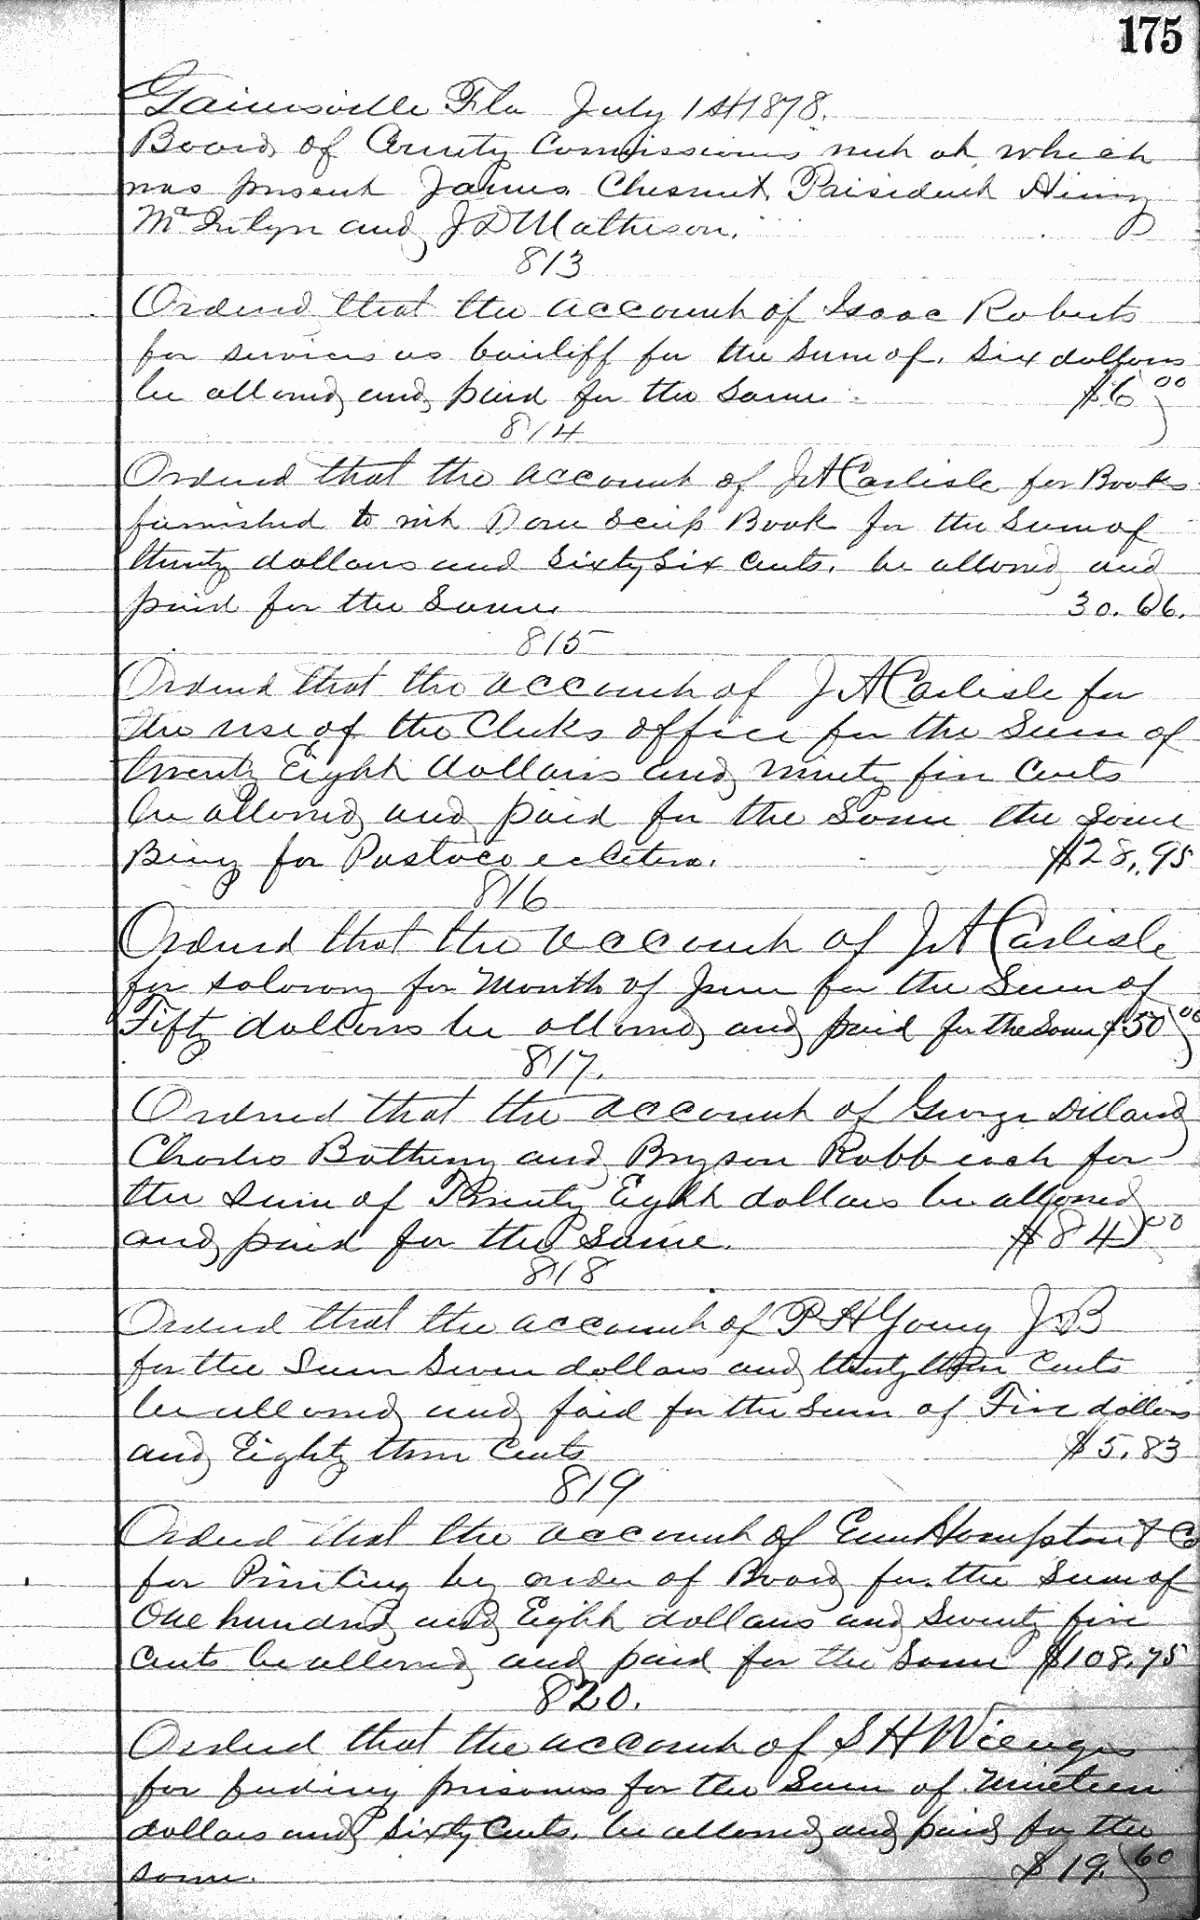 175
Gainesville Fla July 1st 1878.
Board of County Commissioners met at which
was present James Chesnut Praisident Henry
and J D Matheson.
813
Ordered that the account of Isaac Roberts
for services as bailiff for the sum of six dollars
be allowed and paid for the same $6 00
814
Ordered that the account of J A Carlisle for Books
furnished to wit Scrip Book for the sum of
thirty dollars and sixty six cents. be allowed and
paid for the same 30.66.
815
Ordered that the account of J A Carlisle for
the use of the Clerks office for the sum of
twenty Eight dollars and ninety five cents
be allowed and paid for the same the same
Being for etcetera. $28.95
816
Ordered that the account of J A Carlisle
for salarary for Month of June for the sum of
Fifty dollars be allowed and paid for the same $50 00
817.
Ordered that the account of George Dillard
Charles and Bryson Robb each for
the sum of Twenty Eight dollars be allowed
and paid for the same. $84 00
818
Ordered that the account of P H Young
for the sum seven dollars and thirty three cents
be allowed and paid for the sum of Five dollars
and Eighty three cents $5.83
819
Ordered that the account of & Co
for Printing by order of Board for the sum of
One hundred and Eight dollars and seventy five
cents be allowed and paid for the same $108.75
820.
Ordered that the account of S H Wienges
for feeding prisoners for the sum of Nineteen
dollars and sixty cents. be allowed and paid for the
same. $19.60